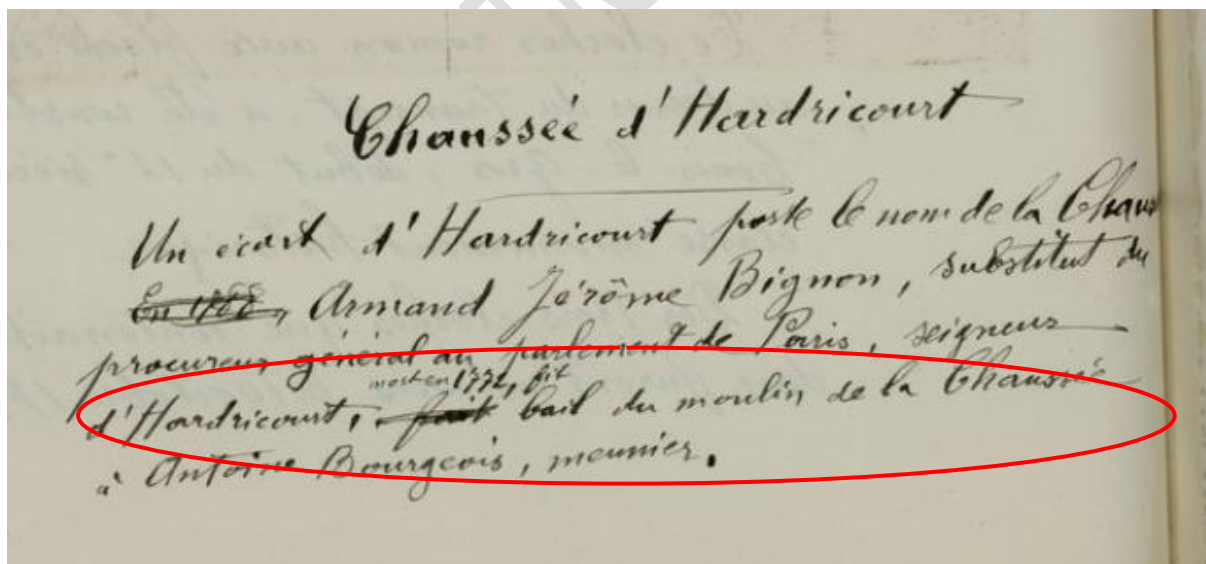 Chaussée d'Hardricourt
Un écart d'Hardricourt porte le nom de la Chaus
En 1768, Armand Jérôme Bignon, substitut du
procureur général au parlement de Paris, seigneur
mort en 1772, fit
d'Hardricourt, fait bail du moulin de la Chaussée
à Antoine Bourgeois, meunier.